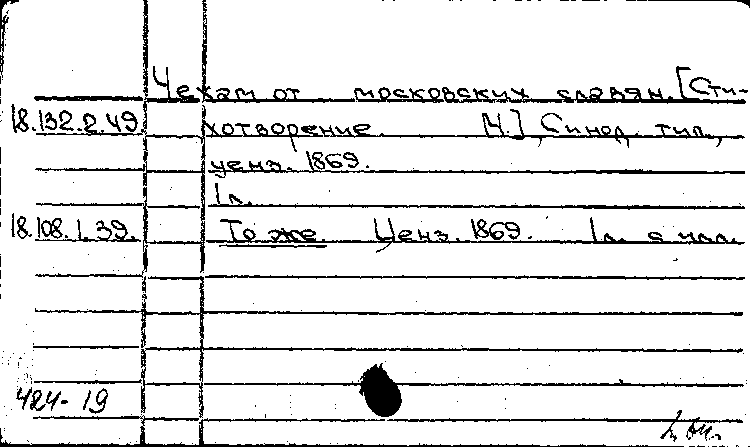 Чехам от московских славян. [Сти-
18.132.2.49. хотворение. М.], Синод. тип.,
ценз. 1869.
1 л.
18.108.1.39. То же. Ценз. 1869. 1 л. с илл.
424-19